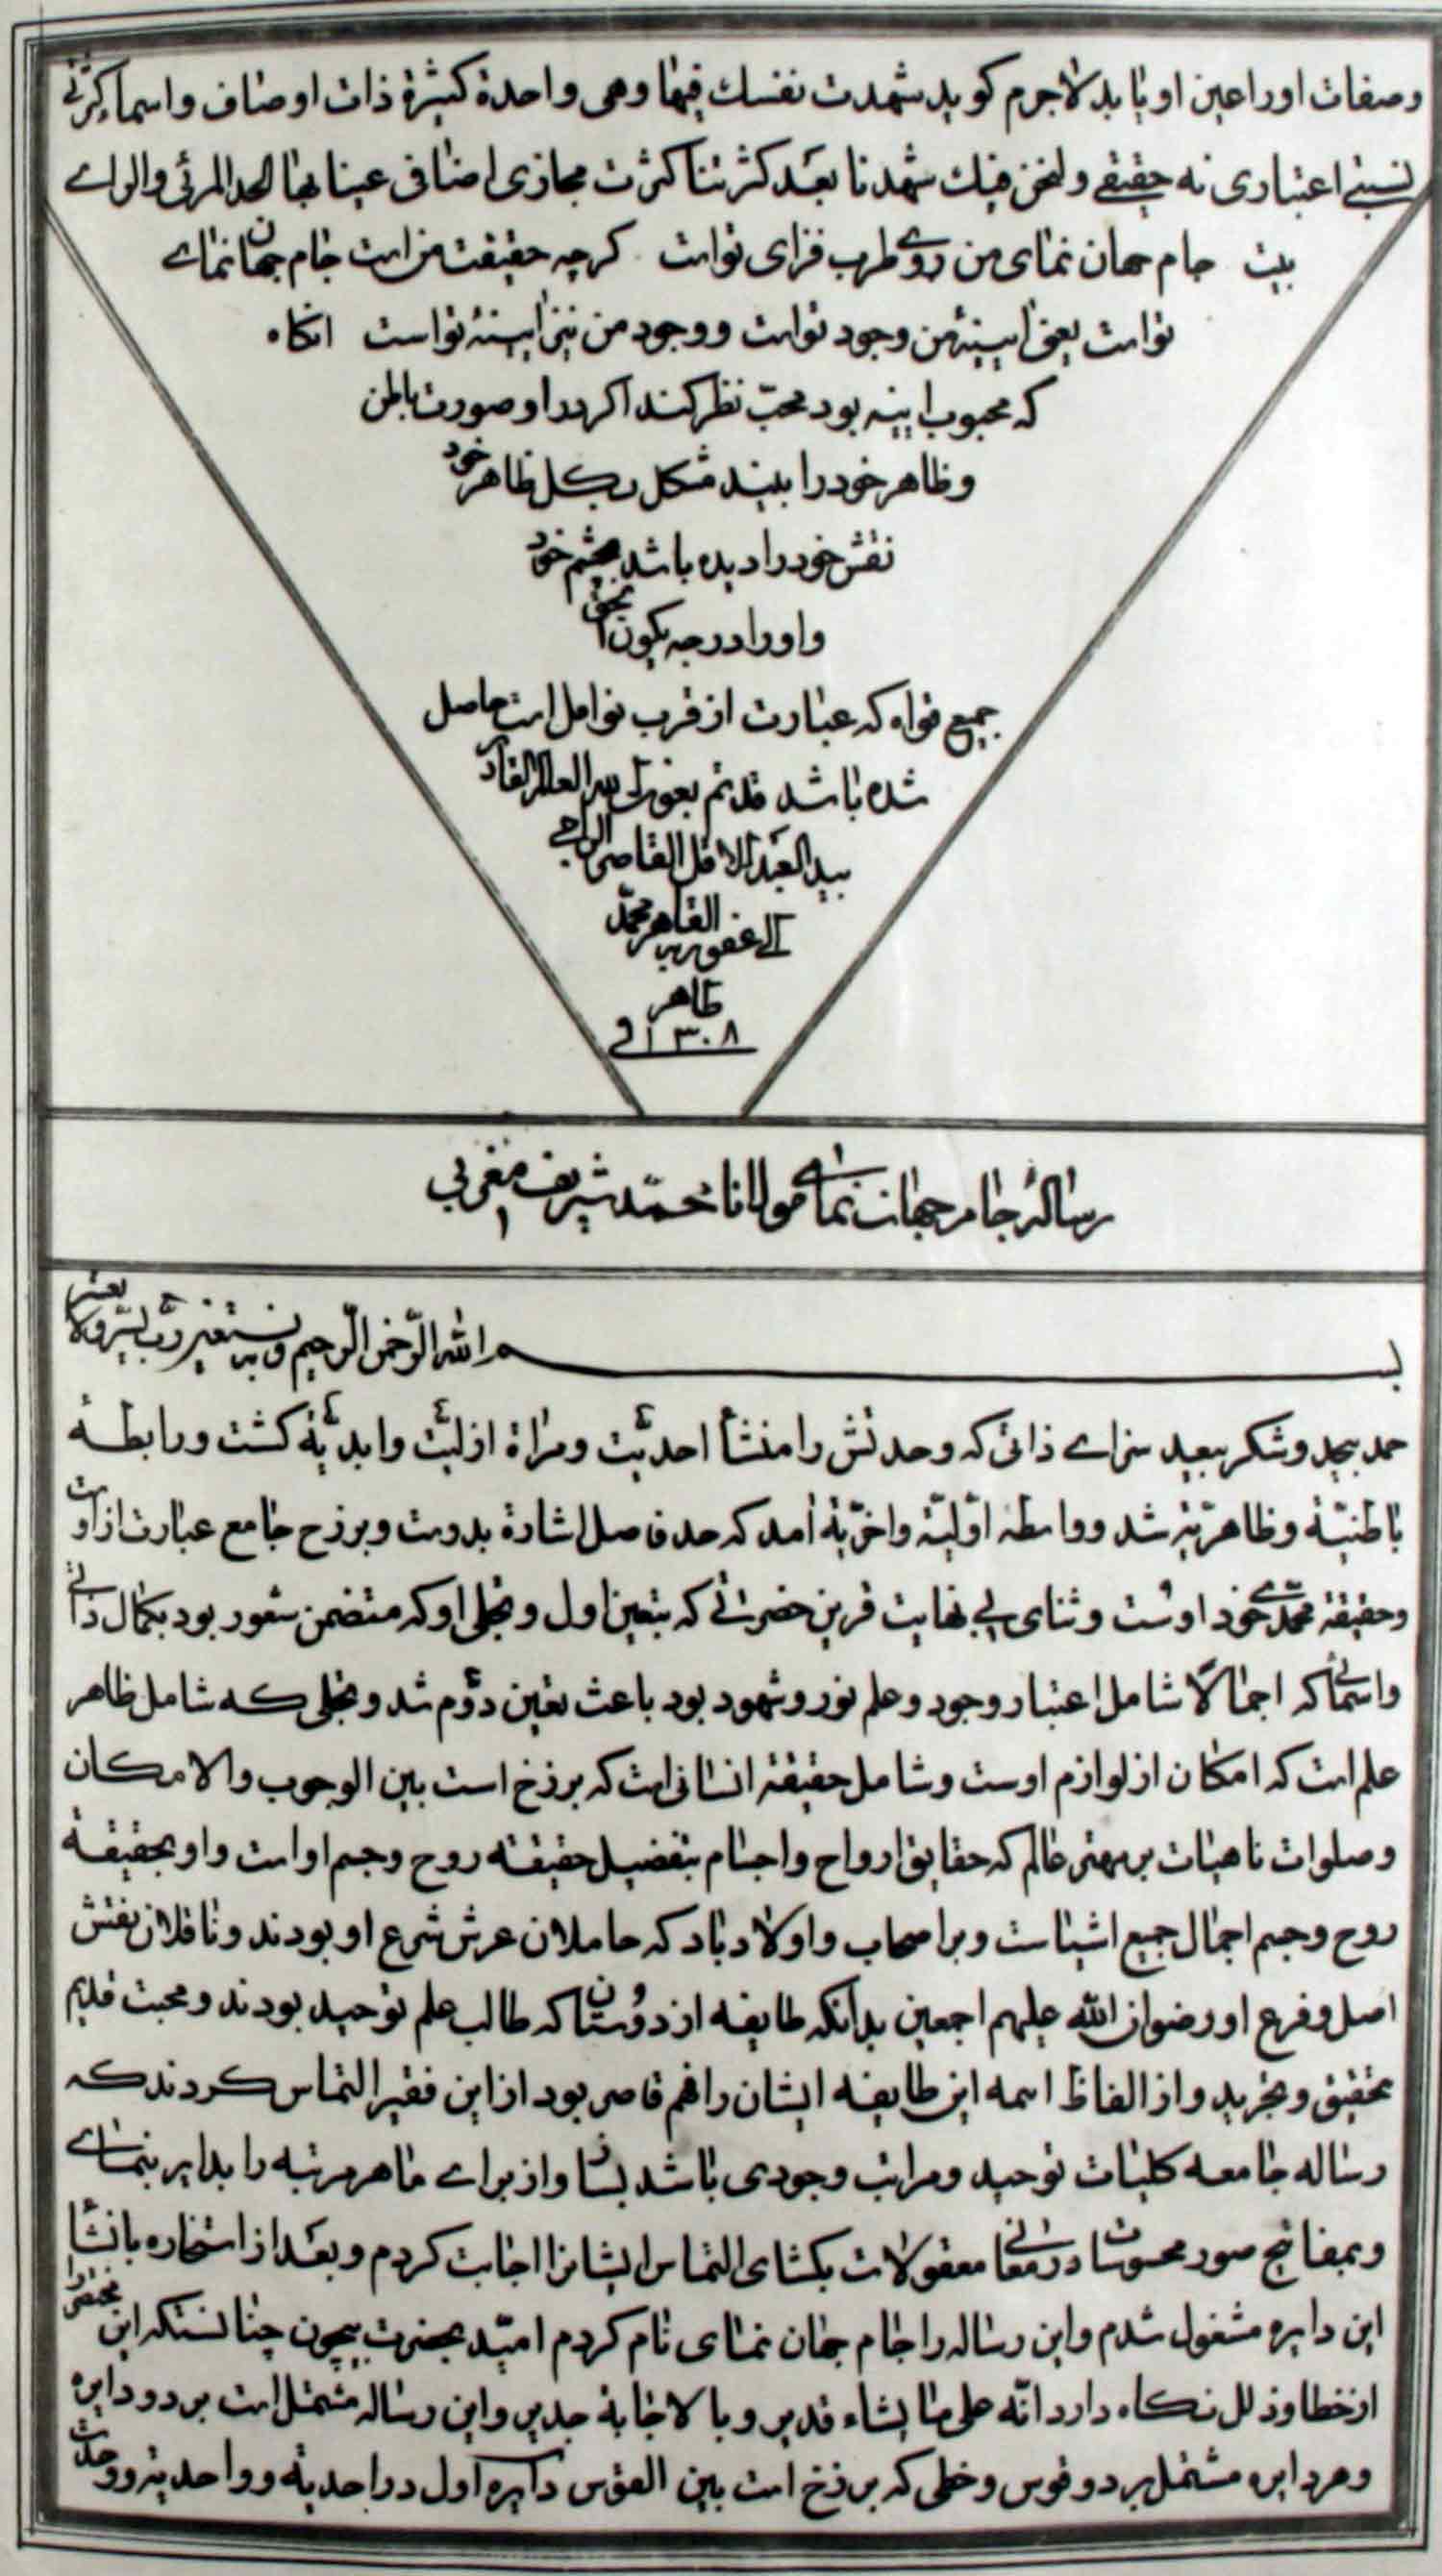 وصفات اورا عین او یابد لاجرم کوید شهدت نفسك فیها وهی واحدة کثیرة ذات اوصاف واسماء کثرتی
نسبتی اعتباری نه حقیقی ونحن فیك شهدنا بعد کثرتنا کثرت مجازی اضافی عینا بها اتحد المرئی والرائے
بیت جام جهان نمای من روی طرب فزای تواست کرچه حقیقت من است جام جهان نمائے
تواست یعنی آیینهٔ من وجود تواست ووجود من نیز آیینهٔ تواست انکاه
که محبوب اینه بود محبّ نظر کند اکر در او صورت باطن
وظاهر خود را بیند مشکل بکل ظاهر خود
نفس خود را دیده باشد بچشم خود
واورا درجه یکون الحق
جمیع قواه که عبارت از قرب نوافل است حاصل
شده باشد قد تم بعون الله العالم القادر
بید العبد الاقل العاصی الراجی
الی عفو ربه القاهر محمّد
طاهر
۱۳۰۸ فی
رسالهٔ جام جهان نمای مولانا محمّد شریف مغربی
بسم الله الرّحمن الرّحیم وبه نستعین ربّ یسّر ولا تعسّر
حمد بیحد وشکر بیعد سزاے ذاتی که وحدتش را منشأ احدیّت ومرآة ازلیّت وابدیّة کشت ورابطهٔ
باطنیّة وظاهریّة شد وواسطهٔ اوّلیّة واخریّة آمد که حد فاصل اشارة بدوست وبرزخ جامع عبارت از اوست
وحقیقة محمّدی خود اوست وثنای بی نهایت قرین حضرتی که بتعین اول وتجلی او که متضمن شعور بود بکمال ذاتی
واسمائی که اجمالاً شامل اعتبار وجود وعلم نور وشهود بود باعث تعین دوّم شد وتجلی که شامل ظاهر
علم است که امکان از لوازم اوست وشامل حقیقة انسانی است که برزخ است بین الوجوب والامکان
وصلوات نامیات بر مهتر عالم که حقایق ارواح واجسام بتفضیل حقیقة روح وجسم او است واو بحقیقة
روح وجسم اجمال جمیع اشیاست وبر اصحاب واولاد باد که حاملان عرش شرع او بودند وناقلان نقش
اصل وفرع او رضوان الله علیهم اجمعین بدانکه طایفه از دوستان که طالب علم توحید بودند ومحبت قدیم
تحقیق وتجرید واز الفاظ ائمه این طایفه ایشان را فهم قاصر بود از این فقیر التماس کردند که
رساله جامعه کلیات توحید ومراتب وجودی باشد بساز واز برای ما هر مرتبه را بدایر بنمای
وبمفاتیح صور محسوسات در معانی معقولات بکشای التماس ایشانرا اجابت کردم وبعد از استخاره بانشأ
این دایره مشغول شدم واین رساله را جام جهان نمای نام کردم امیّد بحضرت بیچون چنانستکه این مختصر را
از خطا وزلل نکاه دارد انّه علی ما یشاء قدیر وبالاجابة جدیر واین رساله مشتمل است بر دو دایره
وهر دایره مشتمل بر دو قوس وخطی که برزخ است بین القوس دایره اول در احدیة وواحدیة ووحدت